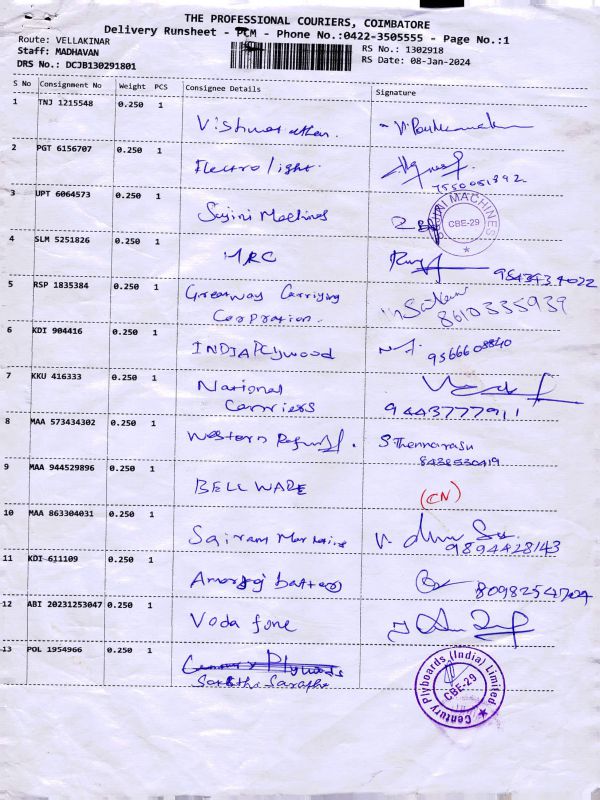 THE PROFESSIONAL COURIERS, COIMBATORE
Delivery Runsheet - PCM - Phone No.:0422-3505555 - Page No.:1
Route: VELLAKINAR
Staff: MADHAVAN
RS No.: 1302918
DRS No.: DCJB130291801
RS Date: 08-Jan-2024
S No Consignment No Weight PCS Consignee Details Signature
1 TNJ 1215548 0.250 1
2 PGT 6156707 0.250 1 Electro light.
7550051392
3 UPT 6064573 0.250 1 Sujini Machines
SUJINI MACHINES CBE-29
4 SLM 5251826 0.250 1 MRC
9843434022
5 RSP 1835384 0.250 1 Greatway Carriying
Corpration.
8610335939
6 KDI 904416 0.250 1 INDIA Plywood
9566608840
7 KKU 416333 0.250 1 National
Carriers
9443777911
8 MAA 573434302 0.250 1 Western S Thennarasu
8438530419
9 MAA 944529896 0.250 1 BELL WARE (CN)
10 MAA 863304031 0.250 1 Sairam
9894428143
11 KDI 611109 0.250 1 battery
8098254704
12 ABI 20231253047 0.250 1 Voda fone
13 POL 1954966 0.250 1 Century Plywoods
Century Plyboards (India) Limited CBE-29